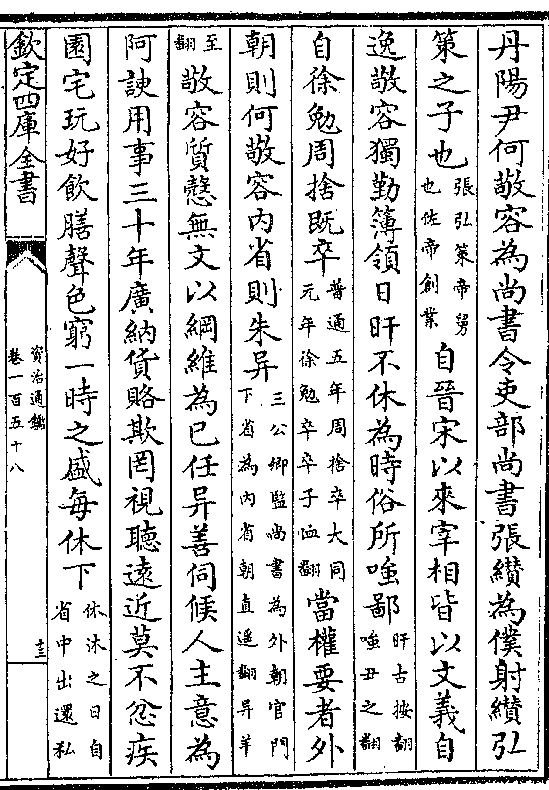 丹陽尹何敬容為尚書令吏部尚書張纘為僕射纘弘
策之子也張弘策帝舅也佐帝創業自晉宋以來宰相皆以文義自
逸敬容獨勤簿領日旰不休為時俗所嗤鄙旰古按翻嗤丑之翻
自徐勉周捨既卒普通五年周捨卒大同元年徐勉卒卒子恤翻當權要者外
朝則何敬容內省則朱异三公卿監尚書為外朝官門下省為內省朝直遥翻异羊
至翻敬容質慤無文以綱維為已任异善伺候人主意為
阿諛用事三十年廣納貨賂欺罔視聽遠近莫不忿疾
園宅玩好飲膳聲色窮一時之盛每休下休沐之日自省中出還私
欽定四庫全書
資治通鑑
卷一百五十八
十三